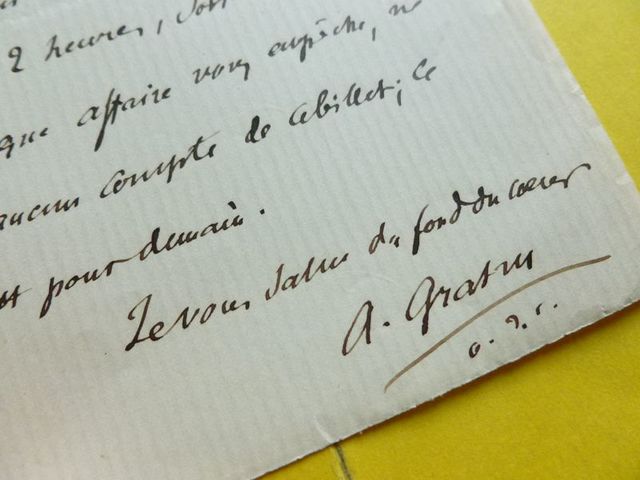 2 heures,
que affaire vous empêche, ne
aucun compte de ce billet; ce
pour demain.
Je vous salue du fond du coeur
A. Gratry